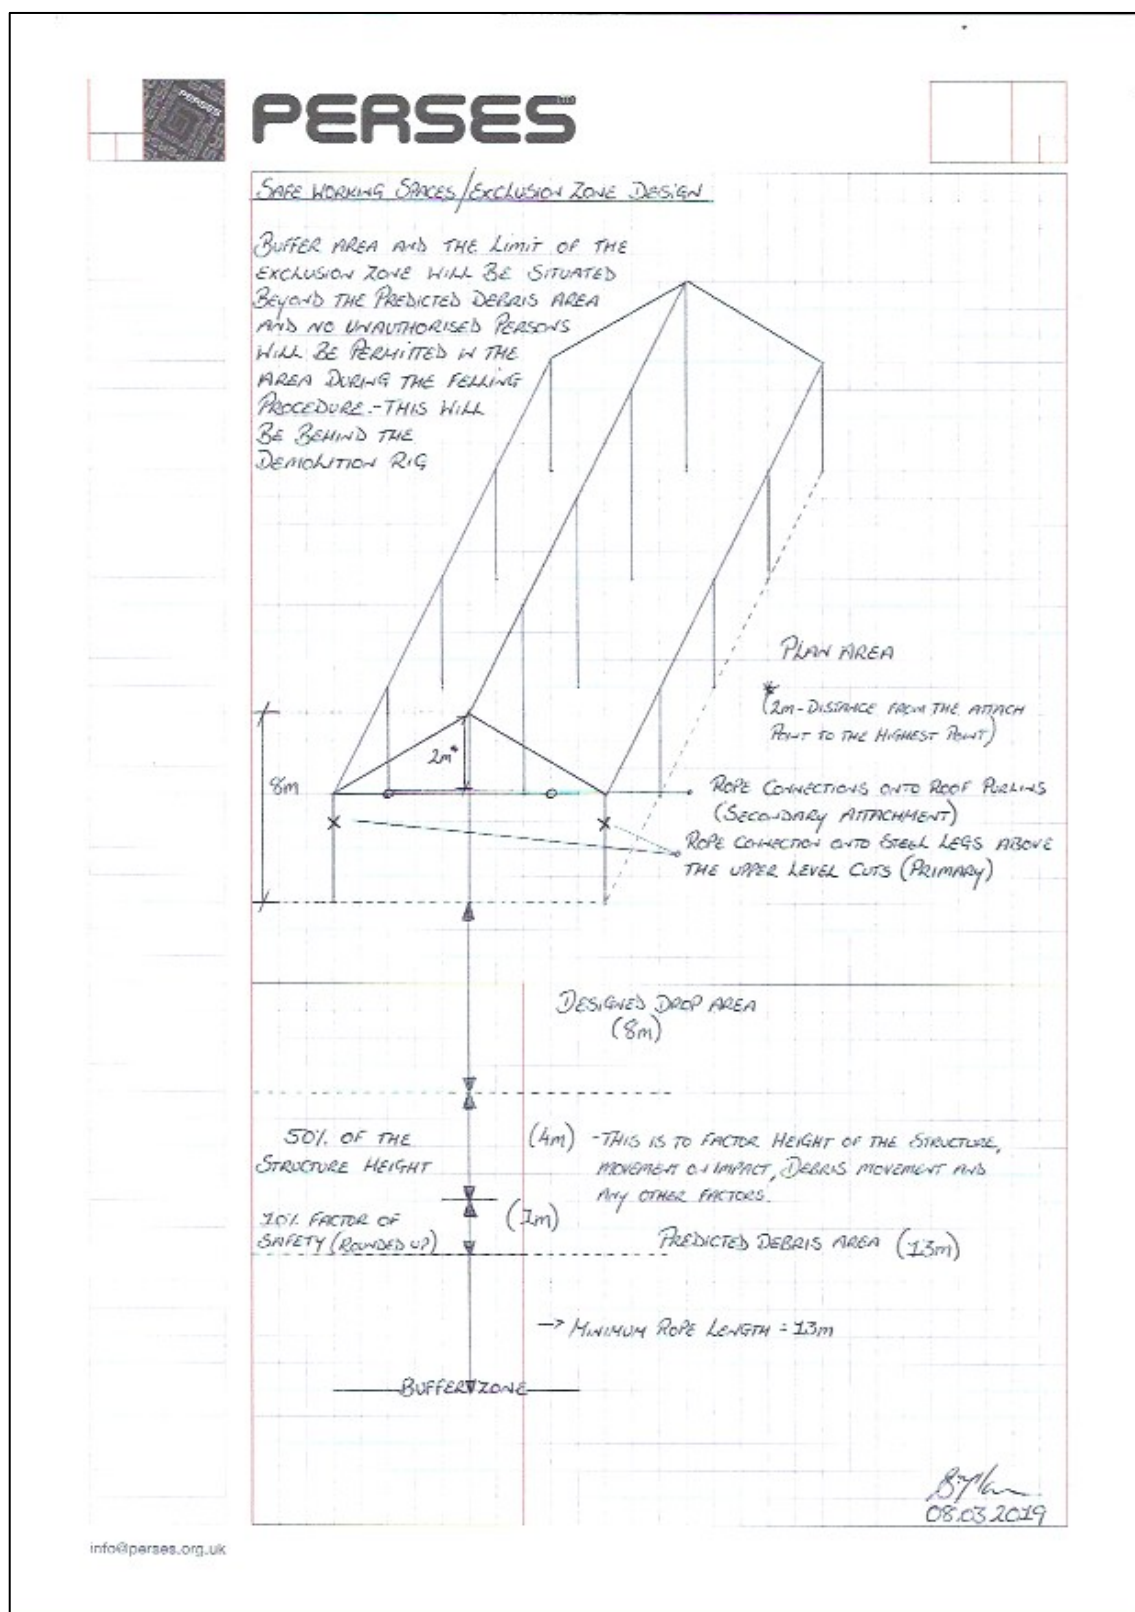 PERSES
PERSES
SAFE WORKING SPACES/EXCLUSION ZONE DESIGN
BUFFER AREA AND THE LIMIT OF THE
EXCLUSION ZONE WILL BE SITUATED
BEYOND THE PREDICTED DEBRIS AREA
AND NO UNAUTHORISED PERSONS
WILL BE PERMITTED IN THE
AREA DURING THE FELLING
PROCEDURE.-THIS WILL
BE BEHIND THE
DEMOLITION RIG
PLAN AREA
*
(2m-DISTANCE FROM THE ATTACH
POINT TO THE HIGHEST POINT)
2m*
8m
ROPE CONNECTIONS ONTO ROOF PURLINS
(SECONDARY ATTACHMENT)
ROPE CONNECTION ONTO STEEL LEGS ABOVE
THE UPPER LEVEL CUTS (PRIMARY)
DESIGNED DROP AREA
(8m)
50% OF THE
STRUCTURE HEIGHT
(4m) -THIS IS TO FACTOR HEIGHT OF THE STRUCTURE,
MOVEMENT ON IMPACT, DEBRIS MOVEMENT AND
ANY OTHER FACTORS.
10% FACTOR OF
SAFETY (ROUNDED UP)
(1m)
PREDICTED DEBRIS AREA (13m)
→ MINIMUM ROPE LENGTH = 13m
BUFFER ZONE
08.03.2019
info@perses.org.uk